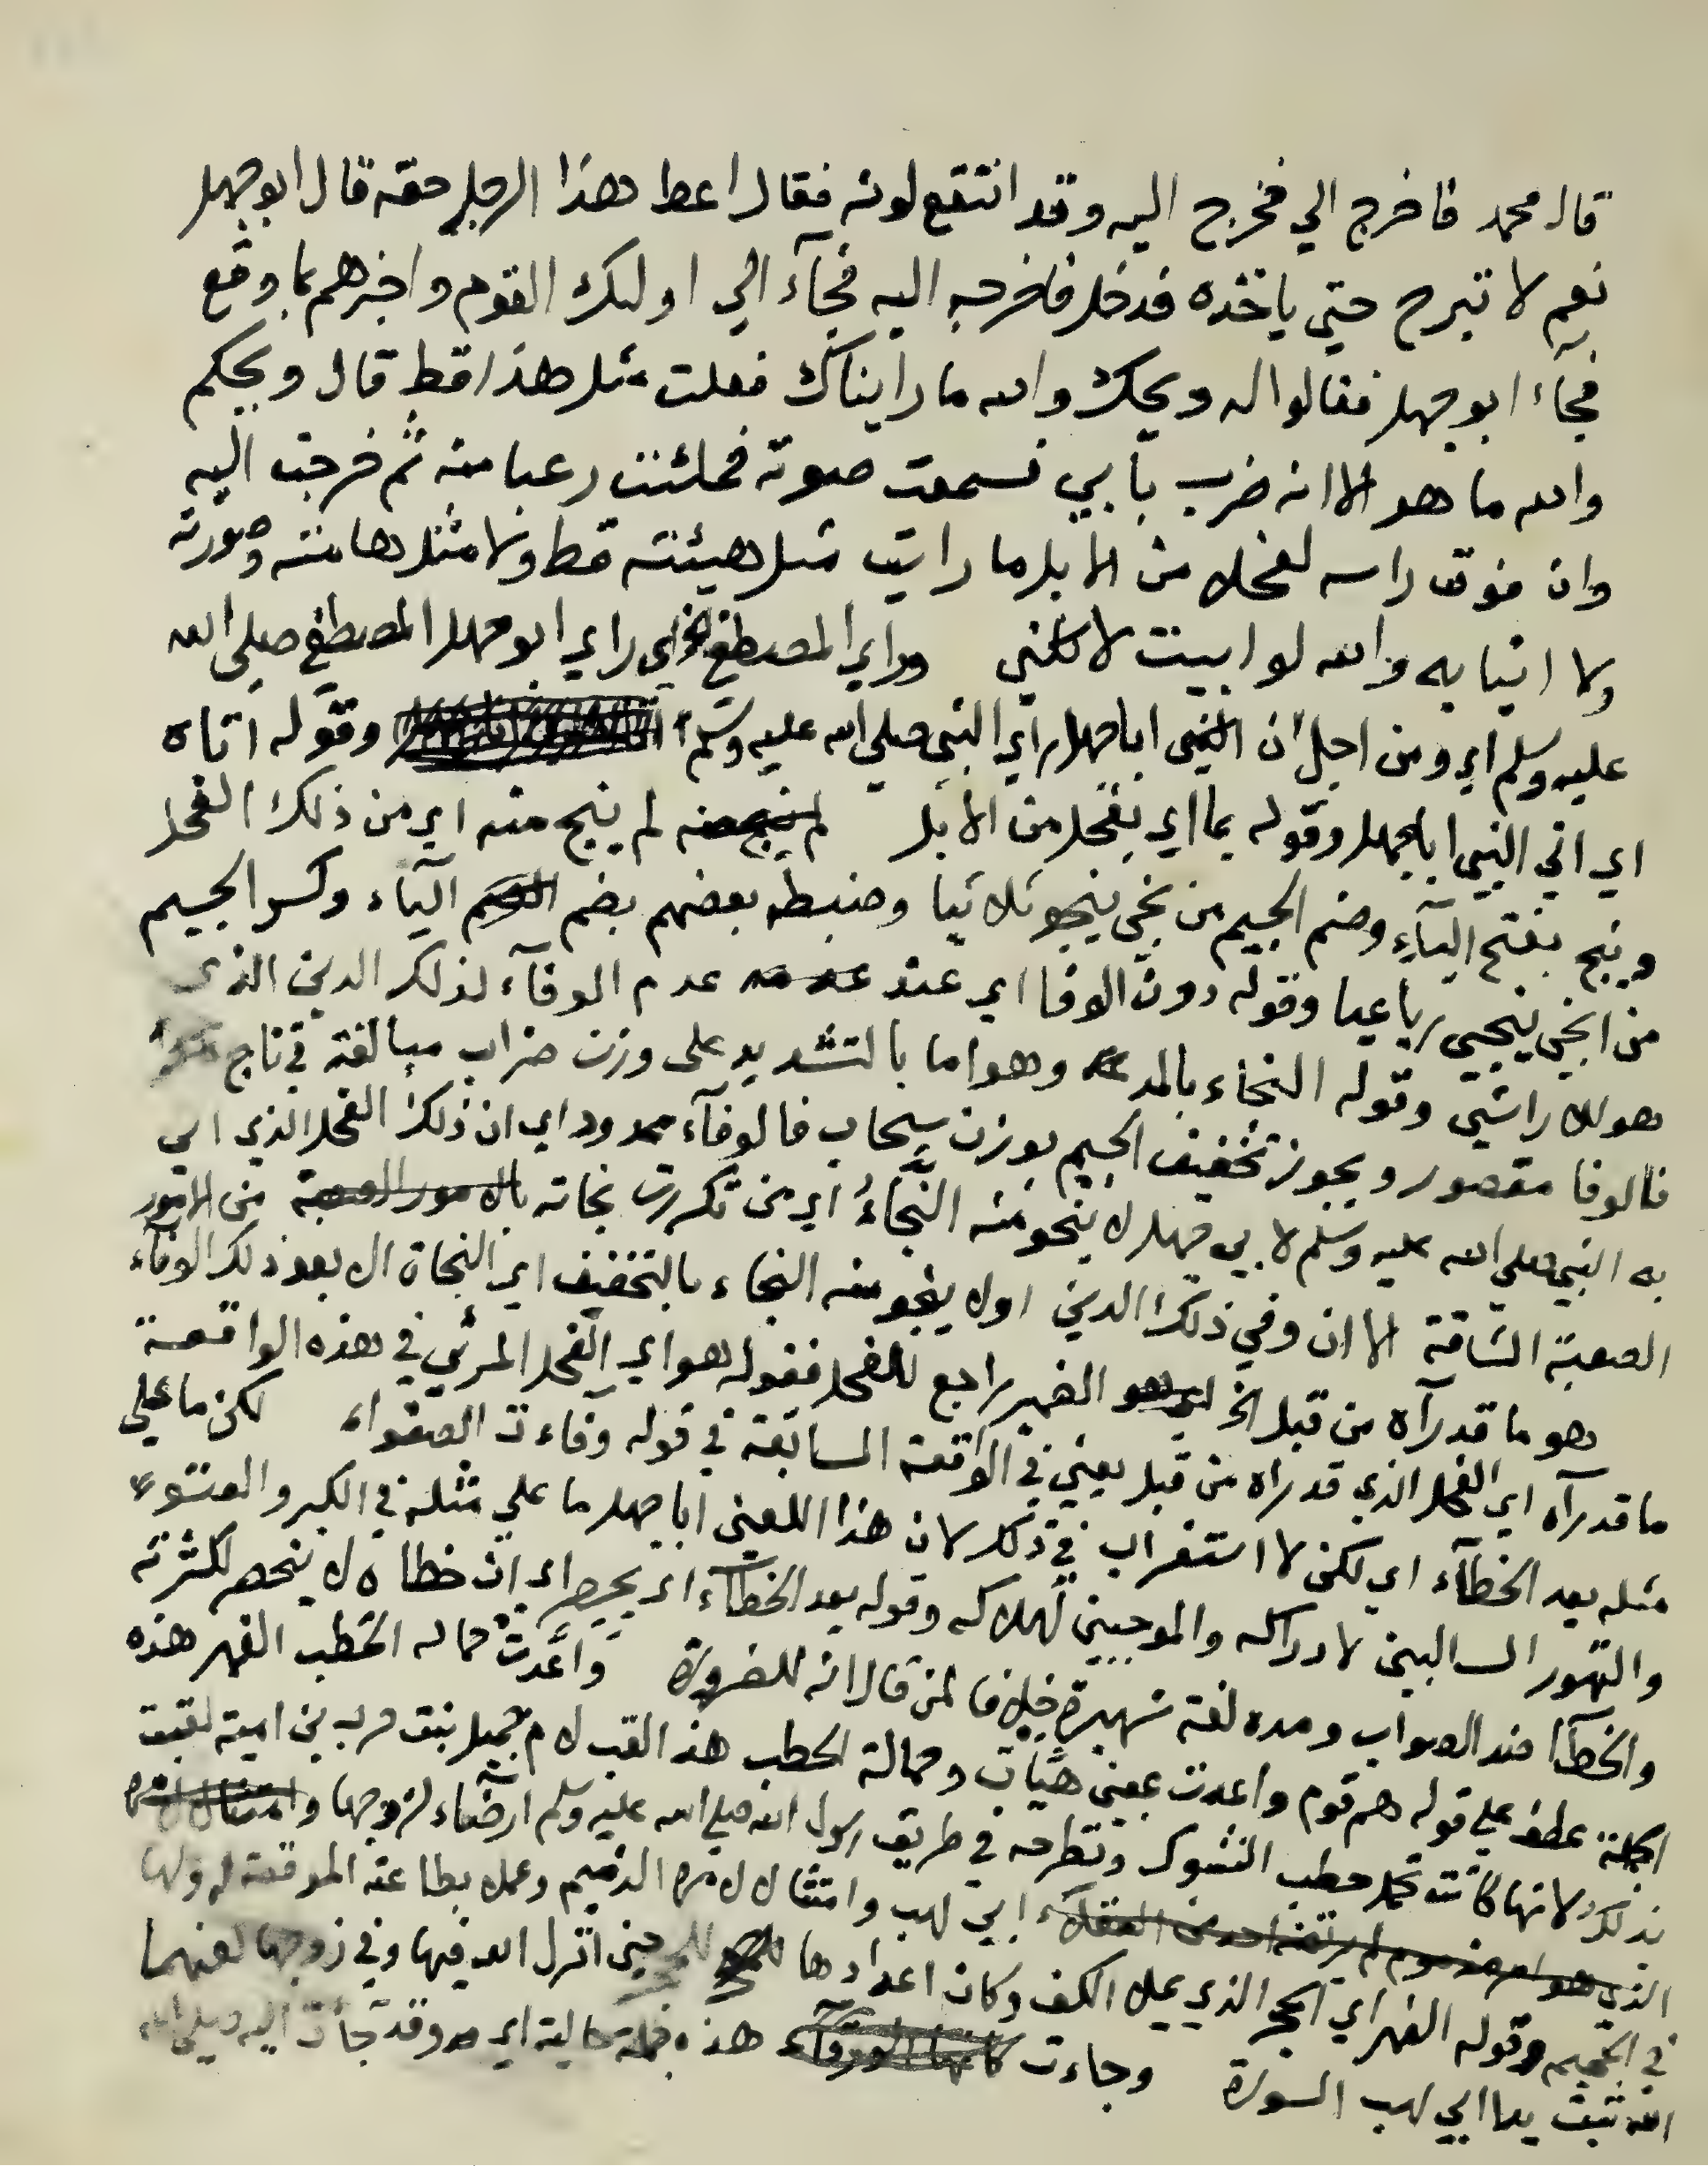 قال محمد فاخرج الي فخرج اليه وقد انتقع لونه فقال اعط هذا الرجل حقه قال ابو جهل
نعم لا تبرح حتي ياخذه فدخل فاخرجه اليه فجآء الي اولئك القوم واخبرهم بما وقع
فجآء ابو جهل فقالوا له ويحك والله ما رايناك فعلت مثل هذا قط قال ويحكم
والله ما هو الا انه ضرب بابي فسمعت صوته فملئت رعبا منه ثم خرجت اليه
وان فوق راسه لفحلا من الابل ما رايت مثل هيئته قط ولا مثل هامته وصورته
ولا انيابه والله لو ابيت لاكلني وراي المصطفي الخ اي راي ابو جهل المصطفي صلي الله
عليه وسلم اي ومن اجل ان ابا جهل راي النبي صلي الله عليه وسلم وقوله اتاه
اي اتي النبي ابا جهل وقوله بما اي بفحل من الابل لم ينج منه اي من ذلك الفحل
وينج بفتح اليآء وضم الجيم من نجي ينجو ثلاثيا وضبطه بعضهم بضم اليآء وكسر الجيم
من انجي ينجي رباعيا وقوله دون الوفا اي عند عدم الوفآء لذلك الدين الذي
هو للاراشي وقوله النجاء بالمد وهو اما بالتشديد علي وزن ضراب مبالغة في ناج
فالوفا مقصور ويجوز تخفيف الجيم بوزن سحاب فالوفآء ممدود اي ان ذلك الفحل الذي اتي
به النبي صلي الله عليه وسلم لابي جهل لا ينجو منه النجّاءُ اي من تكررت نجاته من الامور
الصعبة الشاقة الا ان وفي ذلك الدين او لا ينجو منه النجاء بالتخفيف اي النجاة الا بعد ذلك الوفآء
هو ما قد رآه من قبل الخ الضمير راجع للفحل فقوله هو اي الفحل المرئي في هذه الواقعة
ما قد رآه اي الفحل الذي قد راه من قبل يعني في الوقعة السابقة في قوله وفاءت الصفواء لكن ما علي
مثله يعد الخطآء اي لكن لا استغراب في ذلك لان هذا اللعين ابا جهل ما علي مثله في الكبر والعتو
والتهور السالبين لادراكه والموجبين لهلاكه وقوله يعد الخطآء اي يحصر اي ان خطاه لا ينحصر لكثرته
والخطآ ضد الصواب ومده لغة شهيرة خلافا لمن قال انه للضرورة واعدت حمالة الحطب الفهر هذه
الجملة عطف علي قوله هم قوم واعدت بمعني هيات وحمالة الحطب هذا لقب لام جميل بنت حرب بن امية لقبت
بذلك لانها كانت تحمل حطب الشوك وتطرحه في طريق رسول الله صلي الله عليه وسلم ارضاء لزوجها
ابي لهب وامتثالا لامره الذميم وعملا بطاعته الموقعة له ولها
في الجحيم وقوله الفهر اي الحجر الذي يملا الكف وكان اعدادها حين انزل الله فيها وفي زوجها لعنهما
الله تبت يدا ابي لهب السورة وجاءت هذه جملة حالية اي وقد جأت اليه صلي الله